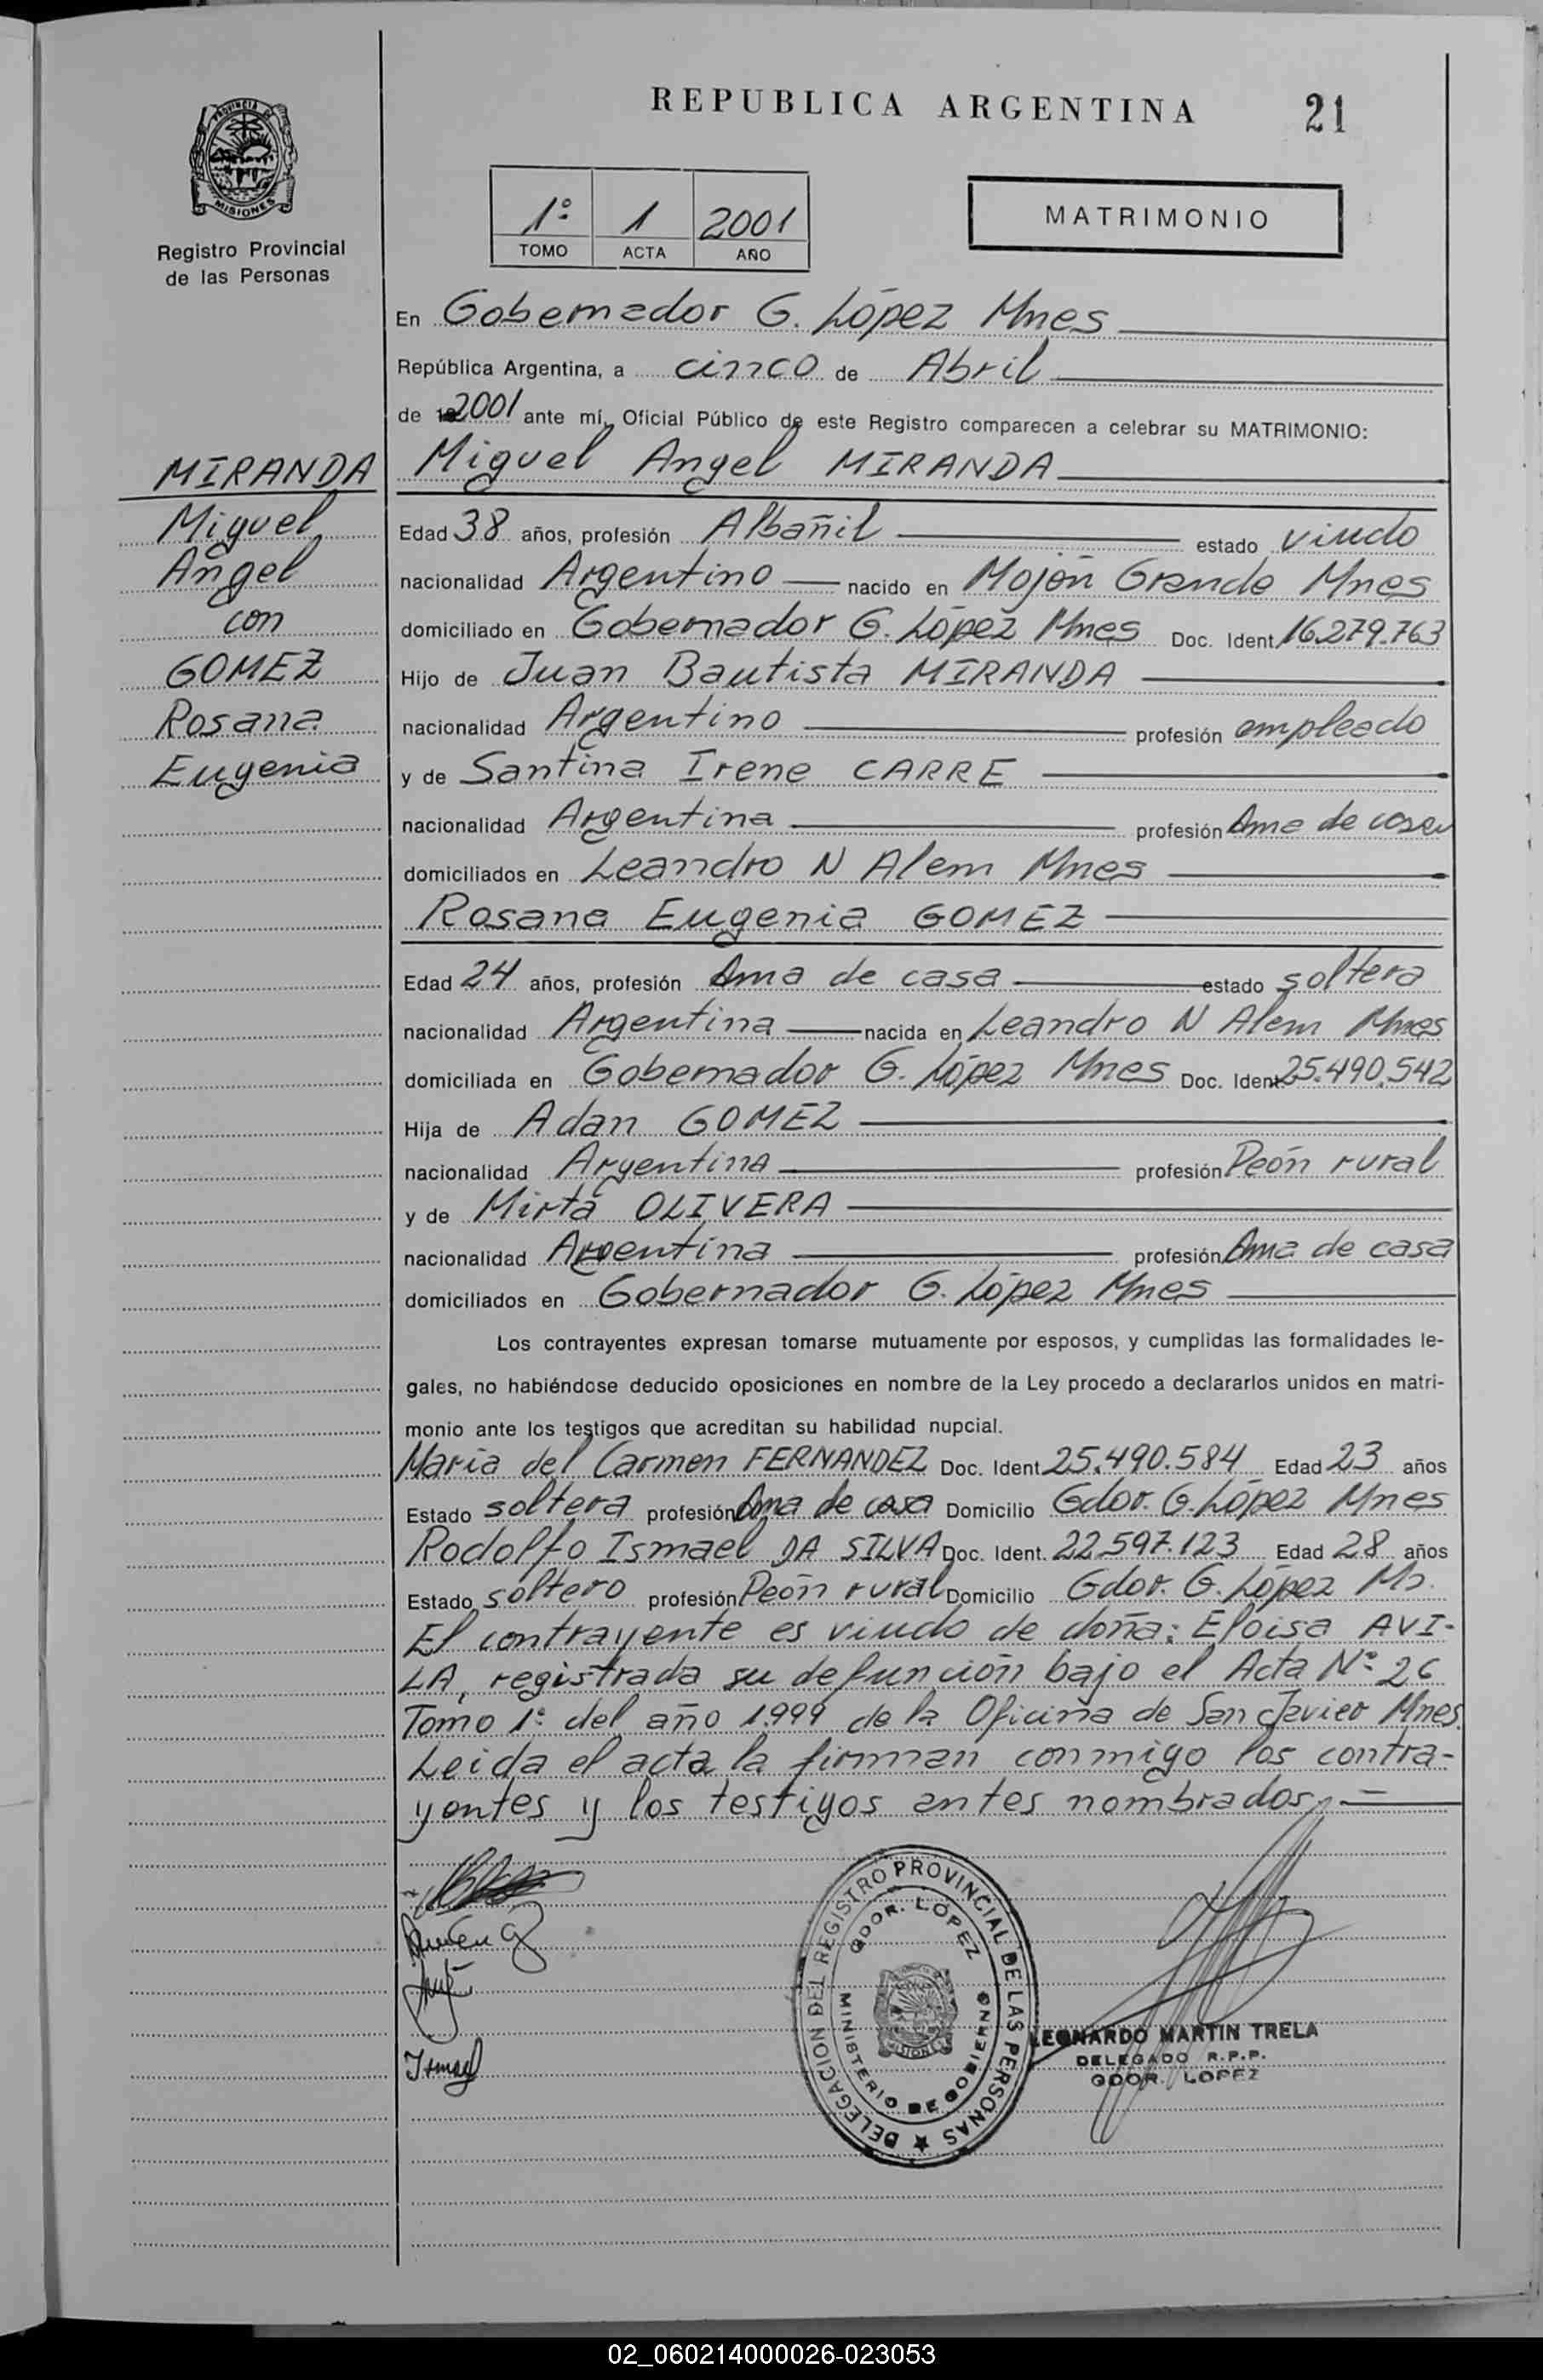 REPUBLICA ARGENTINA
21
PROVINCIA
MISIONES
Registro Provincial
de las Personas
1º 1 2001
TOMO ACTA AÑO
MATRIMONIO
En Gobernador G. López Mnes
República Argentina, a cinco de Abril
de 2001 ante mí, Oficial Público de este Registro comparecen a celebrar su MATRIMONIO:
MIRANDA
Miguel
Angel
con
GOMEZ
Rosana
Eugenia
Miguel Angel MIRANDA
Edad 38 años, profesión Albañil estado viudo
nacionalidad Argentino nacido en Mojón Grande Mnes
domiciliado en Gobernador G. López Mnes Doc. Ident 16.279.763
Hijo de Juan Bautista MIRANDA
nacionalidad Argentino profesión empleado
y de Santina Irene CARRE
nacionalidad Argentina profesión Ama de casa
domiciliados en Leandro N Alem Mnes
Rosana Eugenia GOMEZ
Edad 24 años, profesión Ama de casa estado soltera
nacionalidad Argentina nacida en Leandro N Alem Mnes
domiciliada en Gobernador G. López Mnes Doc. Ident 25.490.542
Hija de Adan GOMEZ
nacionalidad Argentina profesión Peón rural
y de Mirta OLIVERA
nacionalidad Argentina profesión Ama de casa
domiciliados en Gobernador G. López Mnes
Los contrayentes expresan tomarse mutuamente por esposos, y cumplidas las formalidades le-
gales, no habiéndose deducido oposiciones en nombre de la Ley procedo a declararlos unidos en matri-
monio ante los testigos que acreditan su habilidad nupcial.
Maria del Carmen FERNANDEZ Doc. Ident 25.490.584 Edad 23 años
Estado soltera profesión Ama de casa Domicilio Gdor. G. López Mnes
Rodolfo Ismael DA SILVA Doc. Ident. 22.597.123 Edad 28 años
Estado soltero profesión Peón rural Domicilio Gdor. G. López Mn.
El contrayente es viudo de doña: Eloisa AVI-
LA, registrada su defunción bajo el Acta Nº 26
Tomo 1º del año 1.999 de la Oficina de San Javier Mnes.
Leida el acta la firman conmigo los contra-
yentes y los testigos antes nombrados.
Ismael
DELEGACION DEL REGISTRO PROVINCIAL DE LAS PERSONAS
GDOR. LOPEZ
MINISTERIO DE GOBIERNO
MISIONES
LEONARDO MARTIN TRELA
DELEGADO R.P.P.
GDOR. LOPEZ
02_060214000026-023053